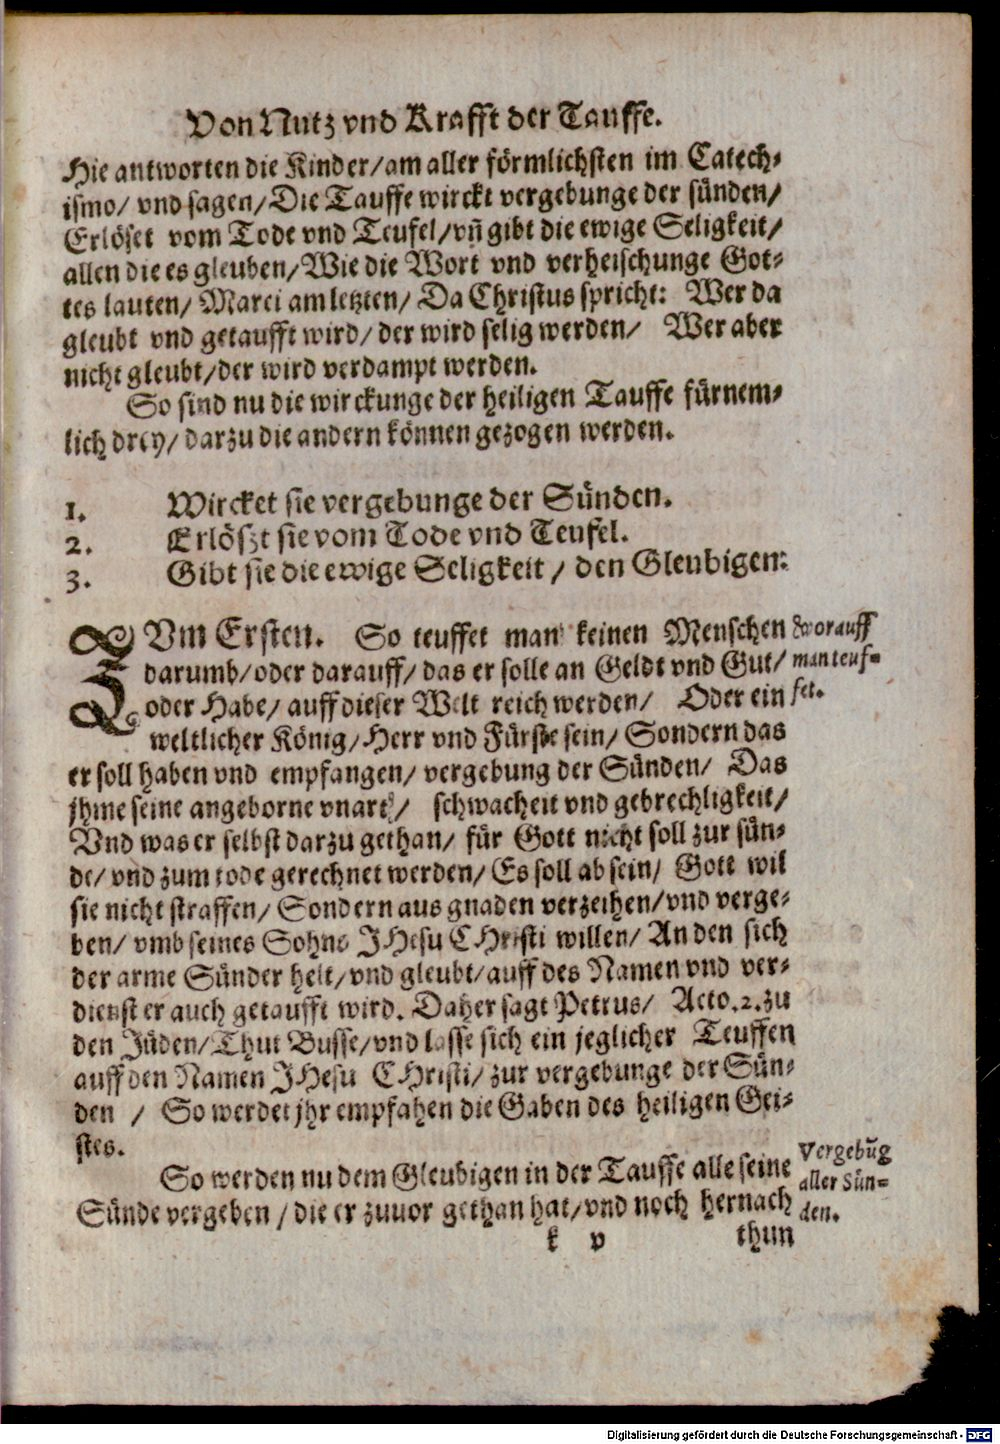 Von Nutz vnd Krafft der Tauffe.
Hie antworten die Kinder/am aller förmlichsten im Catech-
ismo/ vnd sagen/Die Tauffe wirckt vergebunge der sünden/
Erlöset vom Tode vnd Teufel/vñ gibt die ewige Seligkeit/
allen die es gleuben/Wie die Wort vnd verheischunge Got-
tes lauten/ Marci am letzten/ Da Christus spricht: Wer da
gleubt vnd getaufft wird/ der wird selig werden/ Wer aber
nicht gleubt/der wird verdampt werden.
So sind nu die wirckunge der heiligen Tauffe fürnem-
lich drey/ darzu die andern können gezogen werden.
1. Wircket sie vergebunge der Sünden.
2. Erlöszt sie vom Tode vnd Teufel.
3. Gibt sie die ewige Seligkeit / den Gleubigen:
ZVm Ersten. So teuffet man keinen Menschen
darumb/oder darauff/das er solle an Geldt vnd Gut/
oder Habe/ auff dieser Welt reich werden/ Oder ein
weltlicher König/Herr vnd Fürste sein/ Sondern das
er soll haben vnd empfangen/ vergebung der Sünden/ Das
jhme seine angeborne vnart/ schwacheit vnd gebrechligkeit/
Vnd was er selbst darzu gethan/ für Gott nicht soll zur sün-
de/ vnd zum tode gerechnet werden/ Es soll ab sein/ Gott wil
sie nicht straffen/ Sondern aus gnaden verzeihen/vnd verge-
ben/ vmb seines Sohns JHesu CHristi willen/ An den sich
der arme Sünder helt/vnd gleubt/auff des Namen vnd ver-
dienst er auch getaufft wird. Daher sagt Petrus/ Acto.2.zu
den Jüden/Thut Busse/vnd lasse sich ein jeglicher Teuffen
auff den Namen JHesu CHristi/ zur vergebunge der Sün-
den / So werdet jhr empfahen die Gaben des heiligen Gei-
stes.
So werden nu dem Gleubigen in der Tauffe alle seine
Sünde vergeben /die er zuuor gethan hat/vnd noch hernach
k v thun
Worauff
man teuf-
fet.
Vergebũg
aller Sün-
den.
Digitalisierung gefördert durch die Deutsche Forschungsgemeinschaft - DFG